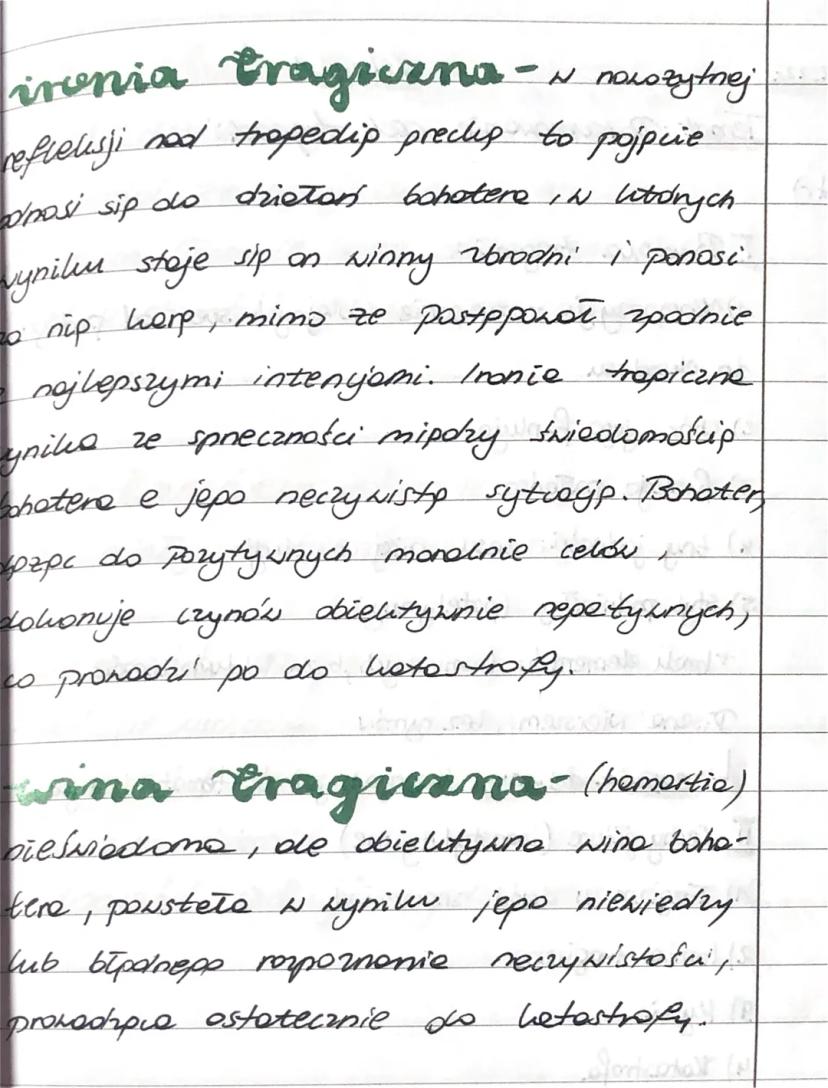 ironia tragiczna - w nowożytnej
refleksji nad tragedią grecką to pojęcie
odnosi się do działań bohatera, w których
wyniku staje się on winny zbrodni i ponosi
za nią karę, mimo że postępował zgodnie
z najlepszymi intencjami. Ironia tragiczna
wynika ze sprzeczności między świadomością
bohatera a jego rzeczywistą sytuacją. Bohater,
dążąc do pozytywnych moralnie celów,
dokonuje czynów obiektywnie negatywnych,
co prowadzi go do katastrofy.
wina tragiczna - (hamartia)
nieświadoma, ale obiektywna wina boha-
tera, powstała w wyniku jego niewiedzy
lub błędnego rozpoznania rzeczywistości,
prowadząca ostatecznie do katastrofy.